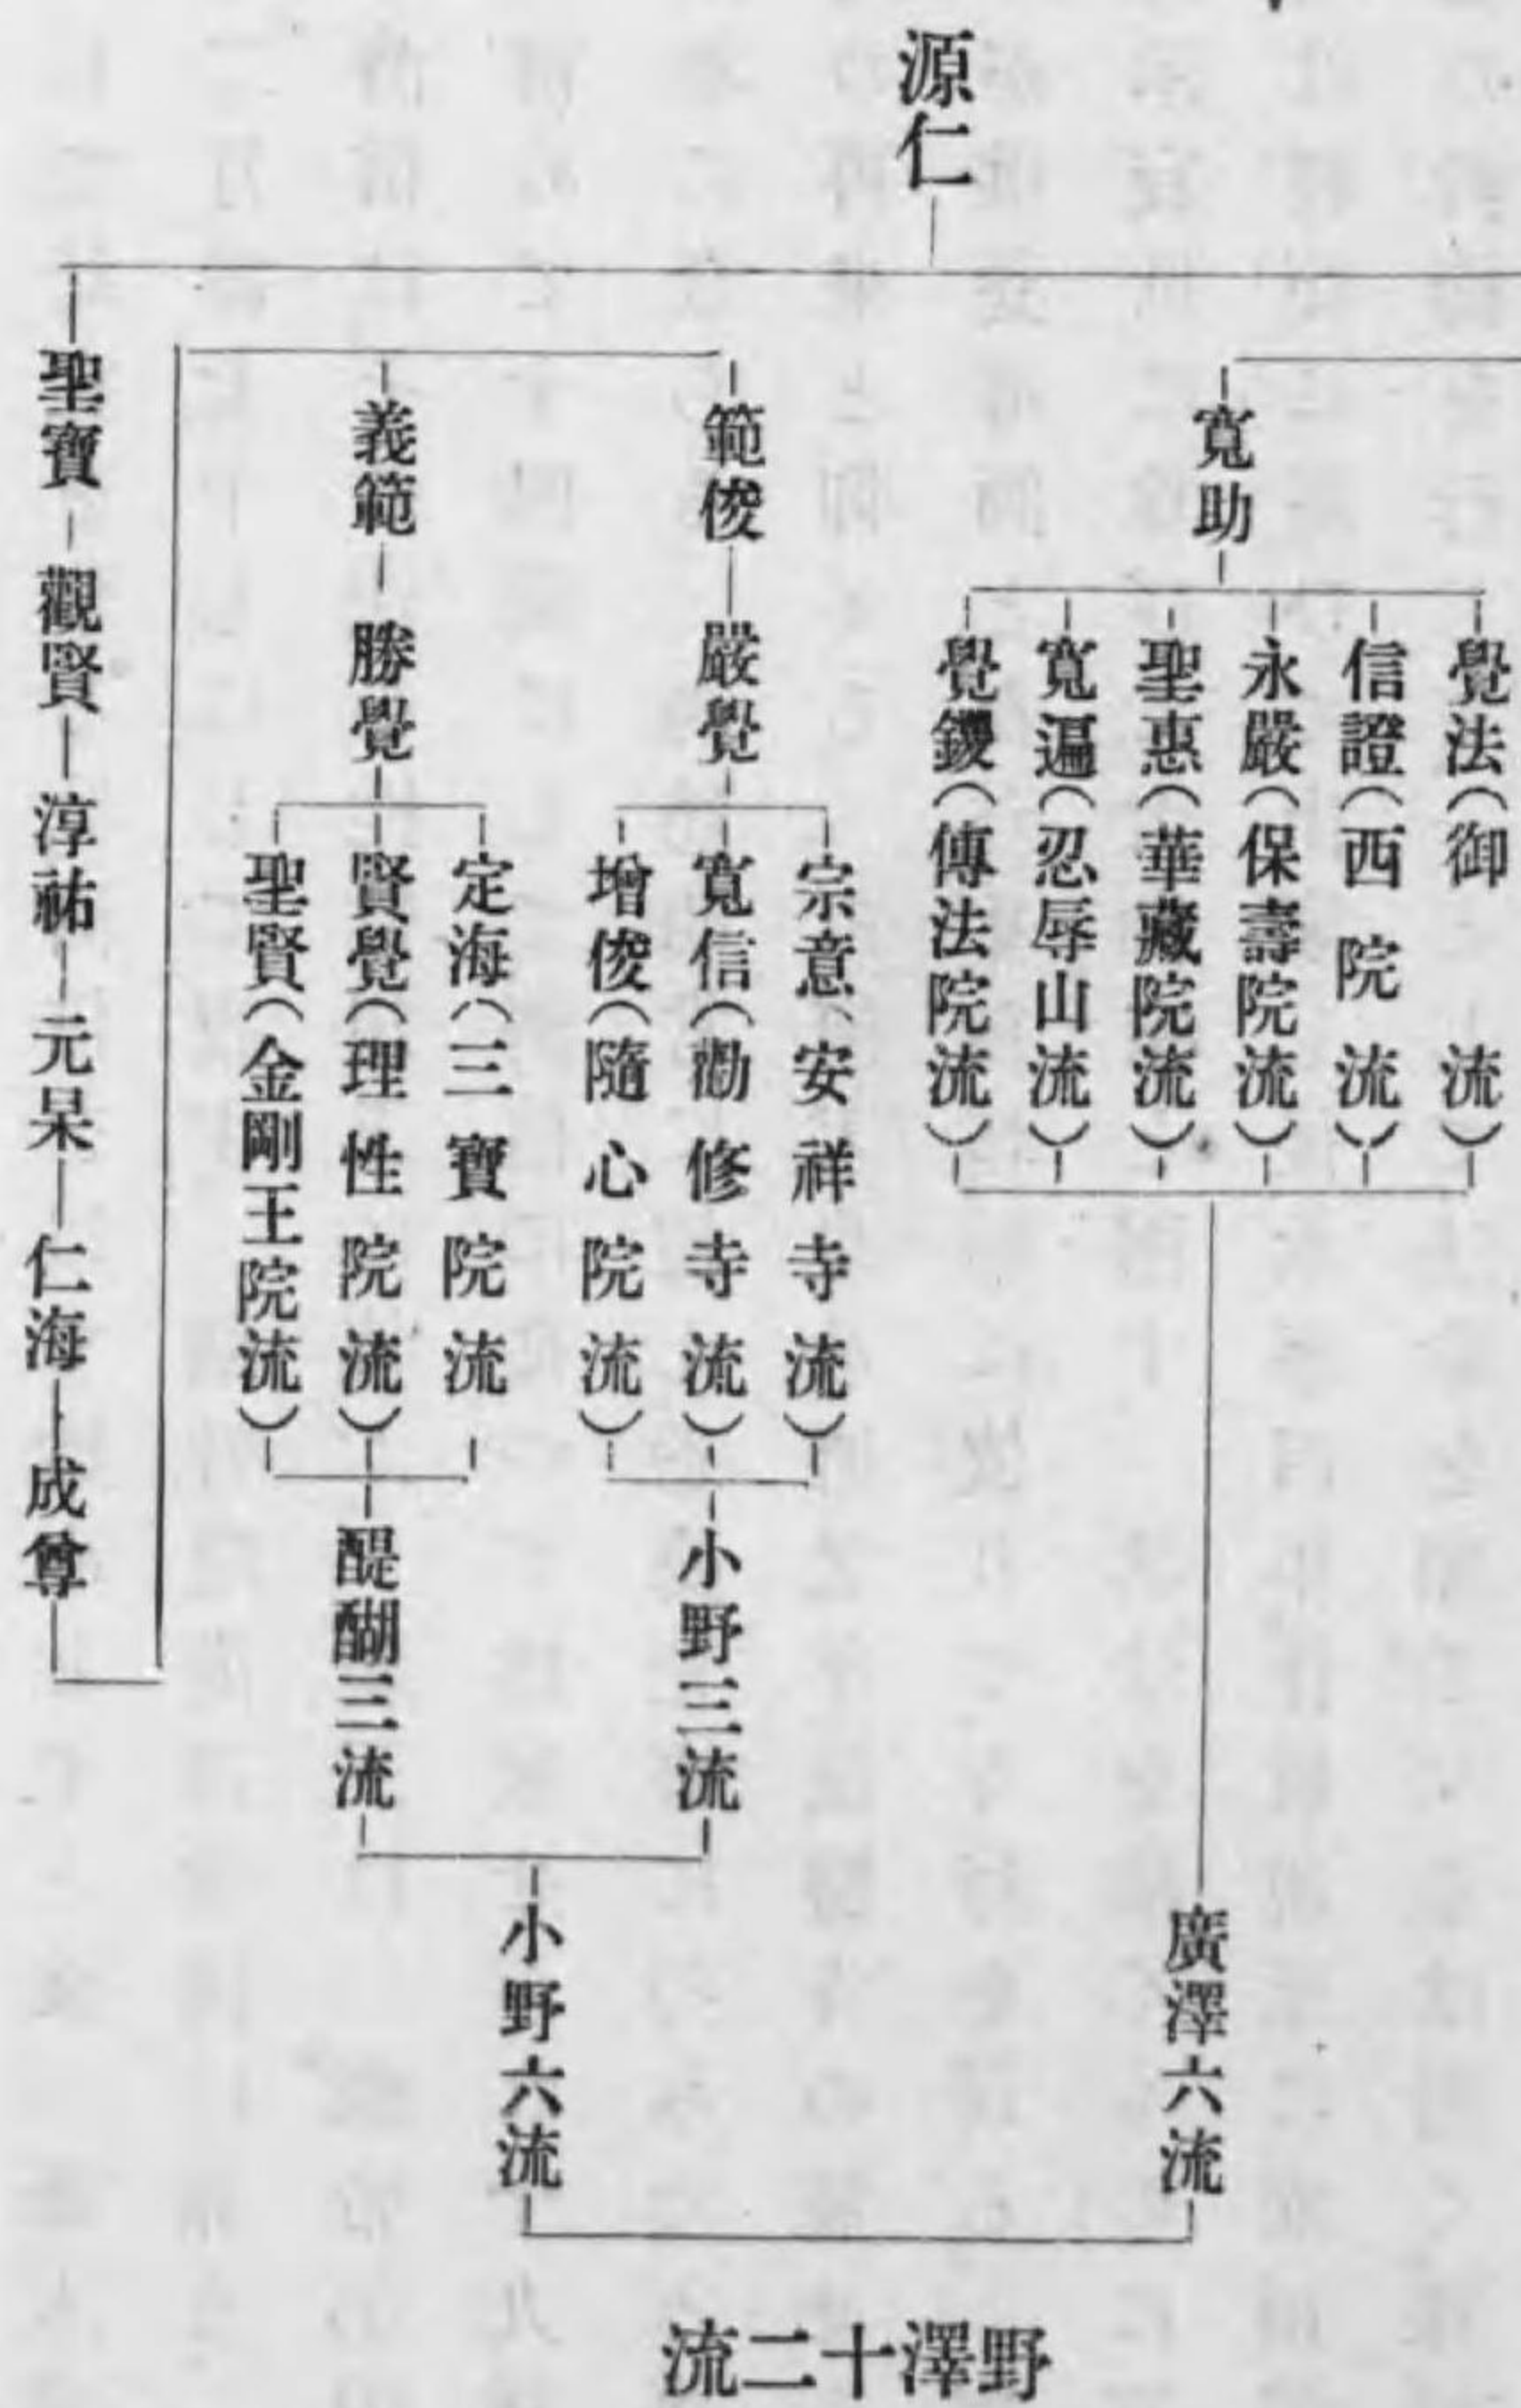 源仁
寬助
覺法（御流）
信證（西院流）
永嚴（保壽院流）
聖惠（華藏院流）
寬遍（忍辱山流）
覺鑁（傳法院流）
廣澤六流
範俊
嚴覺
宗意、安祥寺流）
寬信（勸修寺流）
增俊（隨心院流）
小野三流
義範
勝覺
定海（三寶院流
賢覺（理性院流）
聖賢（金剛王院流）
醍醐三流
小野六流
聖寶
觀賢
淳祐
元杲
仁海
成尊
野澤十二流